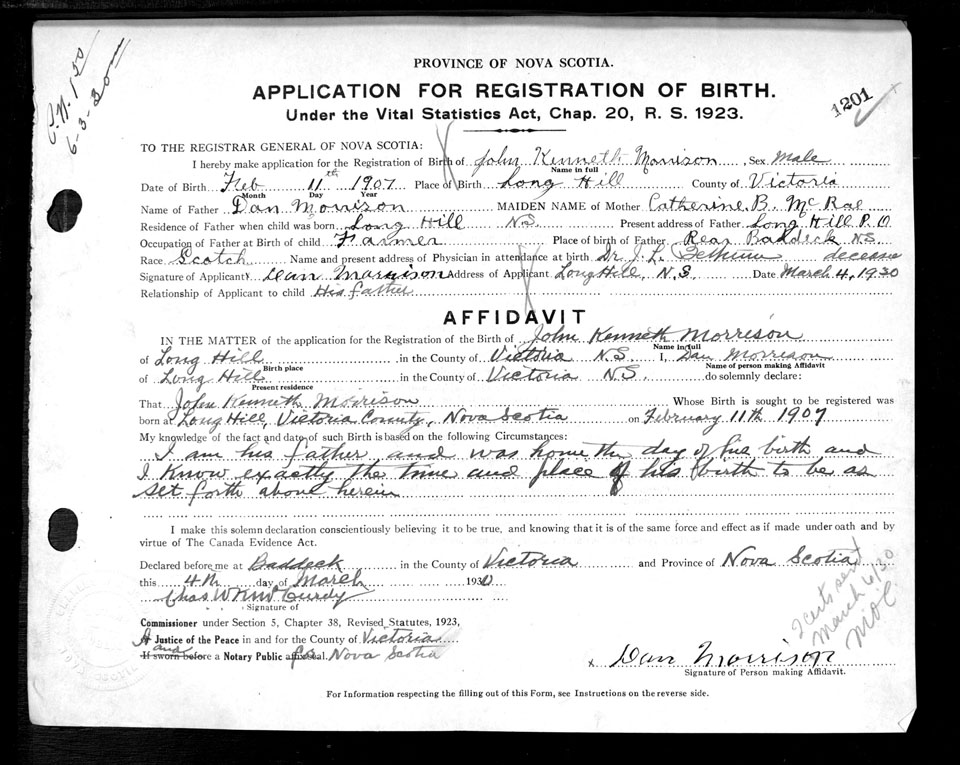 C.N. 150
6-3-30
PROVINCE OF NOVA SCOTIA.
APPLICATION FOR REGISTRATION OF BIRTH.
1201
Under the Vital Statistics Act, Chap. 20, R. S. 1923.
TO THE REGISTRAR GENERAL OF NOVA SCOTIA:
I hereby make application for the Registration of Birth of John Kenneth Morrison, Sex Male
Name in full
Date of Birth Feb 11th 1907 Place of Birth Long Hill County of Victoria
Month Day Year
Name of Father Dan Morrison MAIDEN NAME of Mother Catherine B. McRae
Residence of Father when child was born Long Hill N.S. Present address of Father Long Hill P.O
Occupation of Father at Birth of child Farmer Place of birth of Father Rear Baddeck N.S.
Race Scotch Name and present address of Physician in attendance at birth Dr J. L. Bethune decease
Signature of Applicant Dan Morrison Address of Applicant Long Hill, N.S Date March 4, 1930
Relationship of Applicant to child His father
AFFIDAVIT
IN THE MATTER of the application for the Registration of the Birth of John Kenneth Morrison
Name in full
of Long Hill, in the County of Victoria N.S. I, Dan Morrison
Birth place Name of person making Affidavit
of Long Hill in the County of Victoria N.S. do solemnly declare:
Present residence
That John Kenneth Morrison Whose Birth is sought to be registered was
born at Long Hill, Victoria County, Nova Scotia on February 11th 1907
My knowledge of the fact and date of such Birth is based on the following Circumstances:
I am his father, and was home the day of his birth and
I know exactly the time and place of his birth to be as
set forth above herein
I make this solemn declaration conscientiously believing it to be true, and knowing that it is of the same force and effect as if made under oath and by
virtue of The Canada Evidence Act.
Declared before me at Baddeck in the County of Victoria and Province of Nova Scotia
this 4th day of March 1930
Chas W K McCurdy
Signature of
Commissioner under Section 5, Chapter 38, Revised Statutes, 1923,
A Justice of the Peace in and for the County of Victoria
and
If sworn before a Notary Public affix seal. for Nova Scotia
2 certs sent
March 6/30
x Dan Morrison
Signature of Person making Affidavit.
For Information respecting the filling out of this Form, see Instructions on the reverse side.